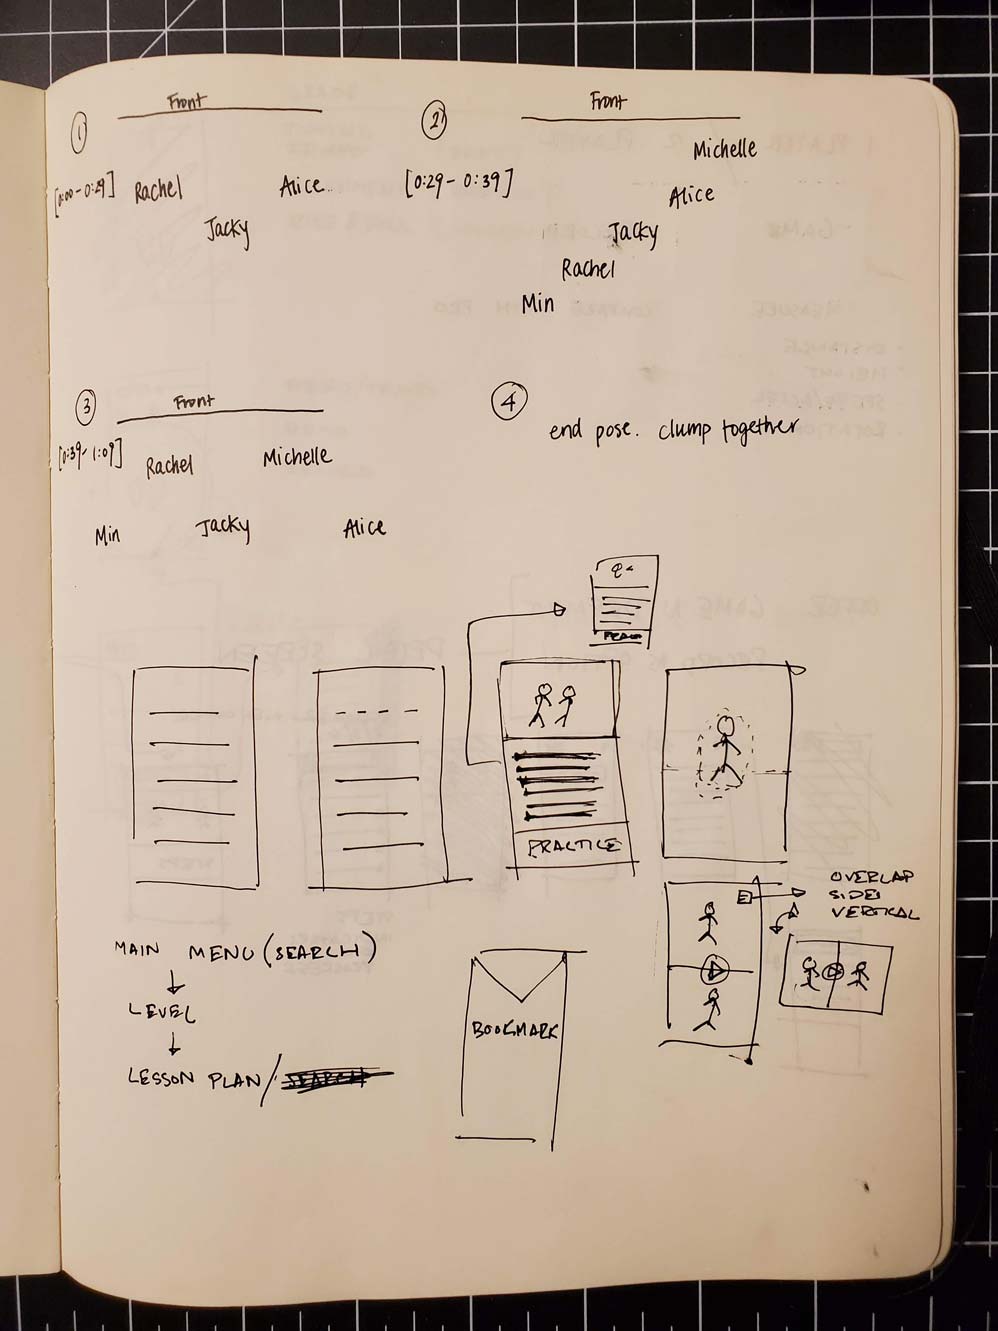 Front
①
[0:00 - 0:29]
Rachel
Alice
Jacky
Front
②
[0:29 - 0:39]
Michelle
Alice
Jacky
Rachel
Min
Front
③
[0:39 - 1:09]
Rachel
Michelle
Min
Jacky
Alice
④
end pose. clump together
PRACTICE
OVERLAP
SIDE
VERTICAL
MAIN MENU (SEARCH)
LEVEL
LESSON PLAN / SEARCH
BOOKMARK